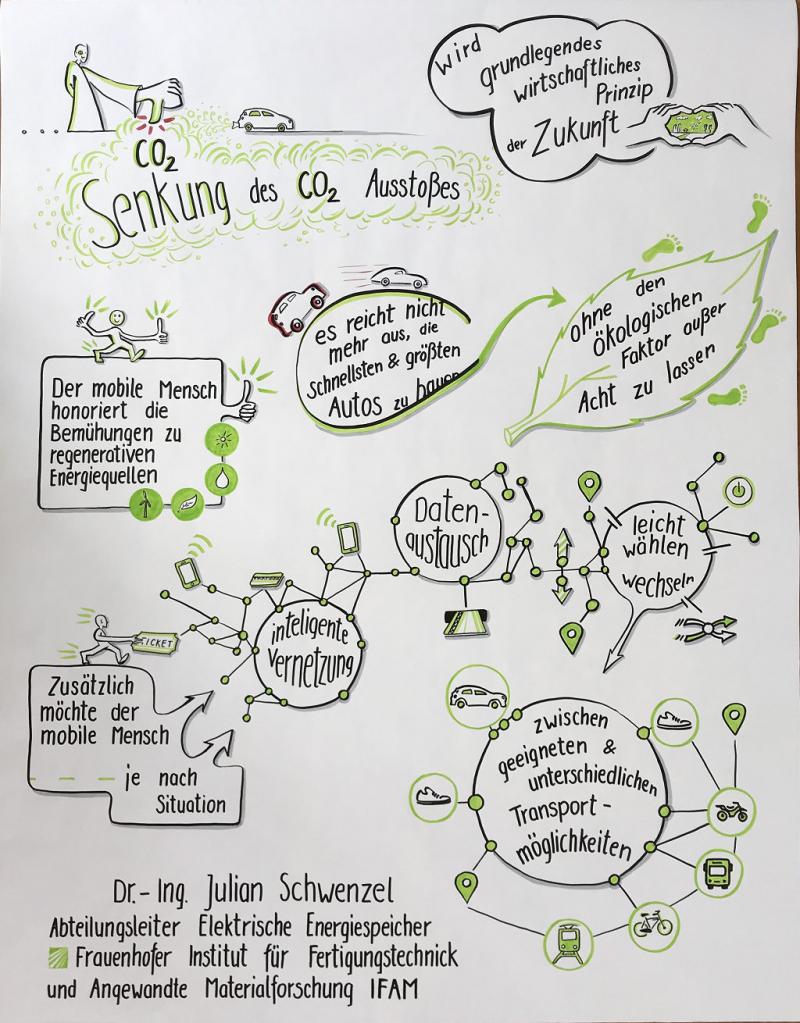 CO2
Senkung des CO2 Ausstoßes
Wird
grundlegendes
wirtschaftliches
Prinzip
der Zukunft
es reicht nicht
mehr aus, die
schnellsten & größten
Autos zu bauen
ohne den
ökologischen
Faktor außer
Acht zu lassen
Der mobile Mensch
honoriert die
Bemühungen zu
regenerativen
Energiequellen
TICKET
Zusätzlich
möchte der
mobile Mensch
je nach
Situation
inteligente
Vernetzung
Daten-
austausch
leicht
wählen
wechseln
zwischen
geeigneten &
unterschiedlichen
Transport-
möglichkeiten
Dr.-Ing. Julian Schwenzel
Abteilungsleiter Elektrische Energiespeicher
Frauenhofer Institut für Fertigungstechnick
und Angewandte Materialforschung IFAM